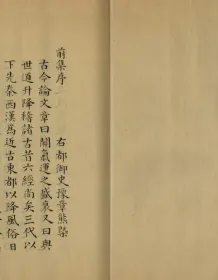 前集序
右都御史豫章熊㮣
古今論文章曰關氣運之盛衰又曰與
世道升降稽諸古昔六經尚矣三代以
下先秦西漢為近古東都以降風俗日